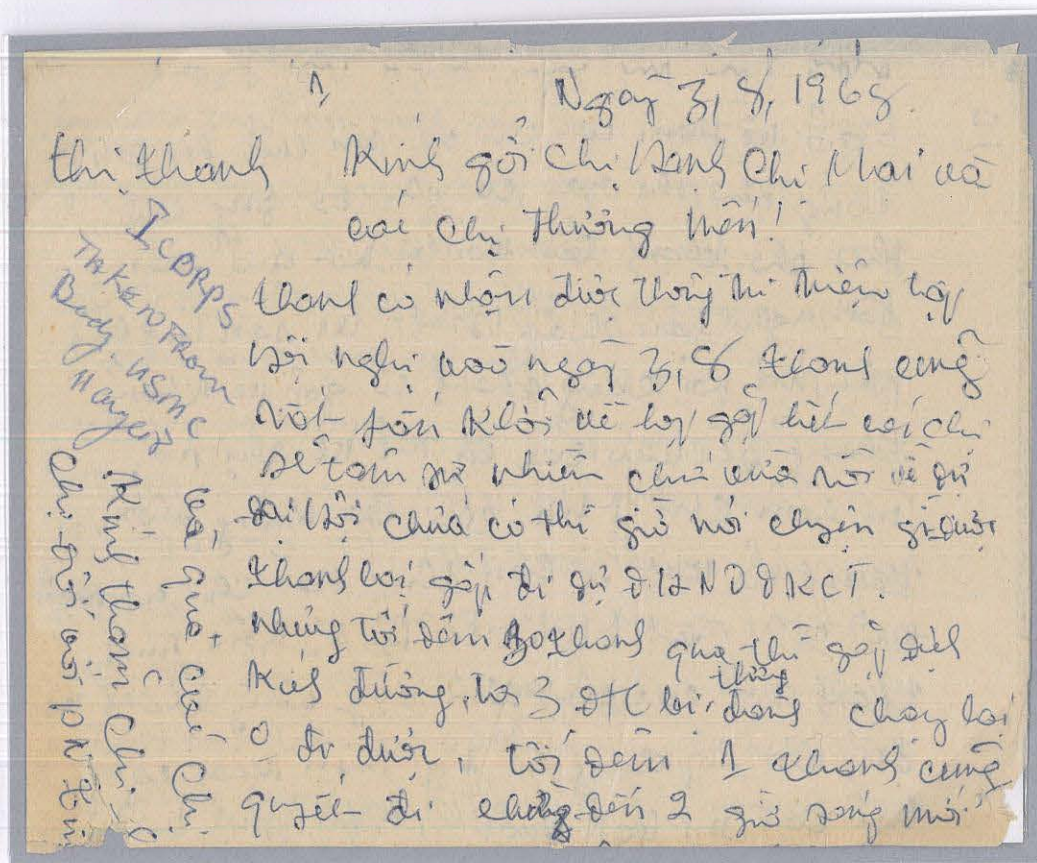 1,
Ngày 3, 8, 1968.
thị thanh Kính gởi Chị Hạnh Chị Mai và
các chị thương mến!
thanh có nhận được thông tri triệu tập
hội nghị vào ngày 3, 8 thanh cũng
rất phấn khởi về họp gặp hết các chị
để tâm sự nhiên chứ vừa rồi về dự
đại hội chưa có thì giờ nói chuyện gì được
thanh lại gặp đi dự ĐHNDĐKCT.
nhưng tối đêm 30 thanh qua thì gặp địch
kích đường, 3 ĐTC bị thương thanh chạy lại
o đi được, tối đêm 1 thanh cũng
quyết đi đến 2 giờ sáng mới
I, CORPS
TAKEN FROM
Body. USMC
Kính thăm Chị
Chị đối với
quá các Chị